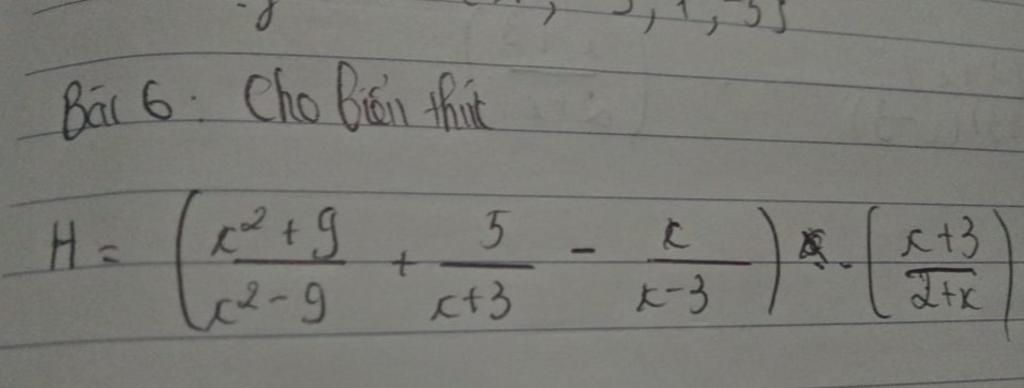 Bài 6: Cho biến thức
H = (x² + 9 / x² - 9 + 5 / x+3 - x / x-3) . (x+3 / 2+x)